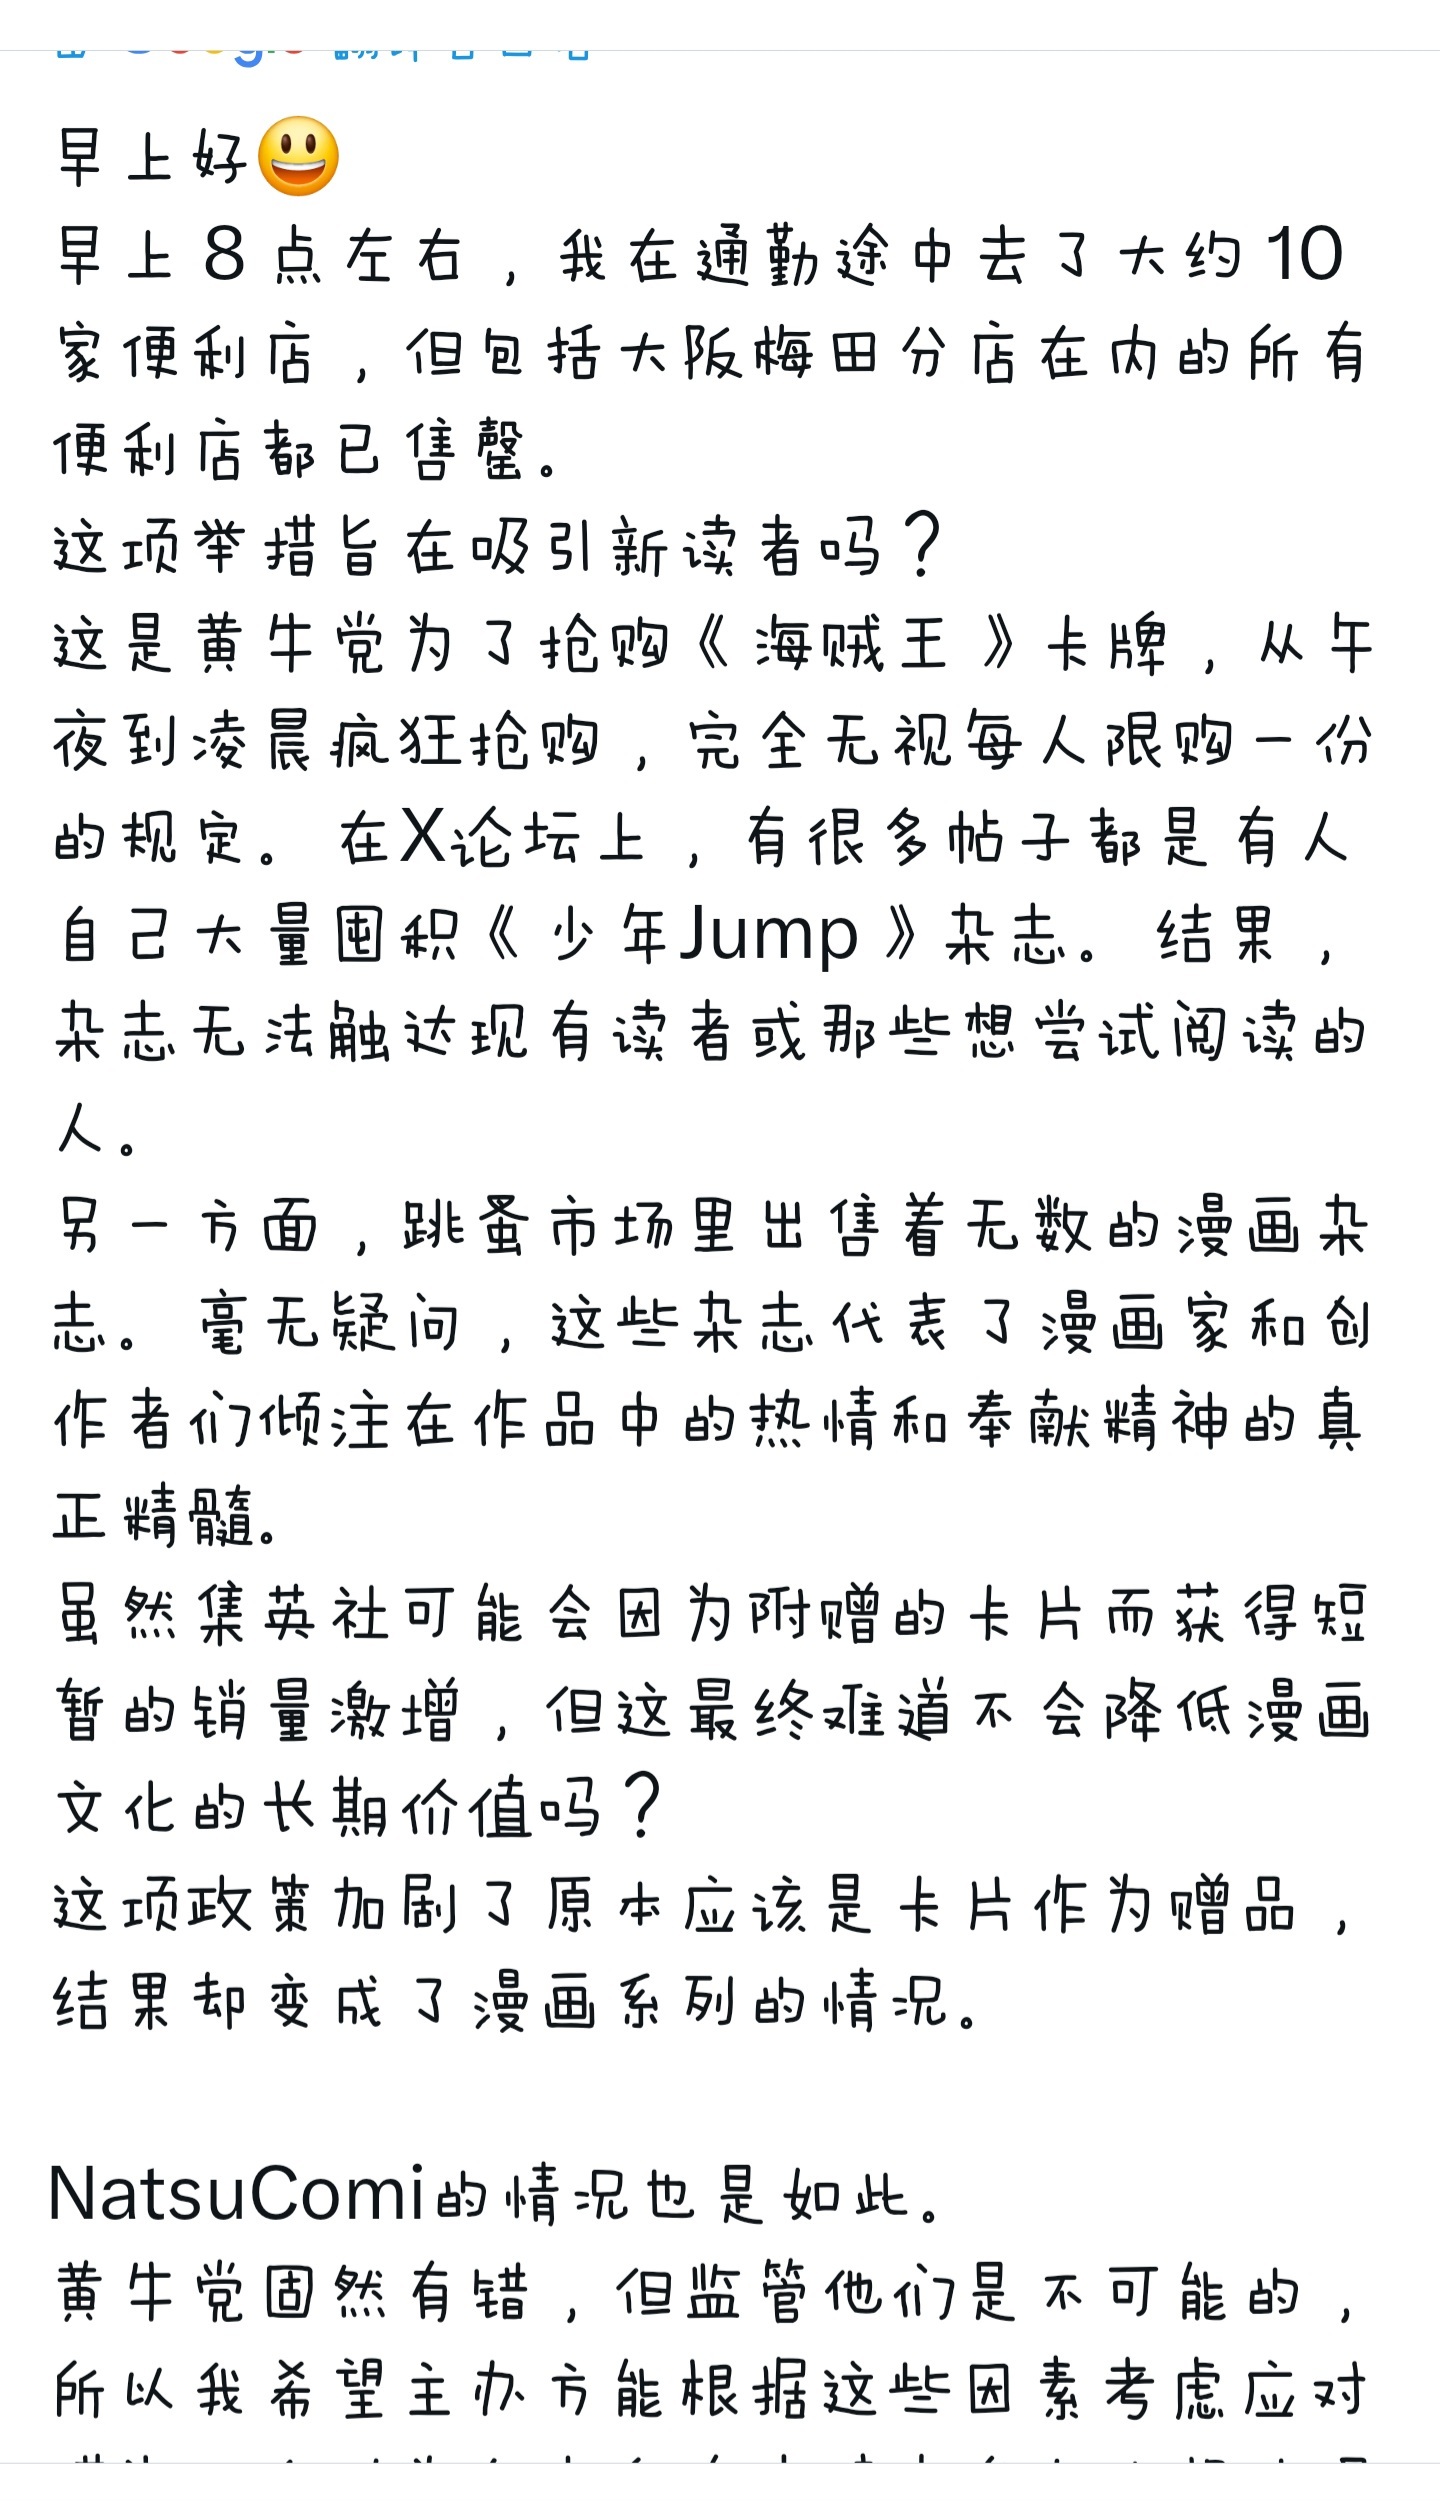 早上好😃
早上8点左右，我在通勤途中去了大约10
家便利店，但包括大阪梅田分店在内的所有
便利店都已售罄。
这项举措旨在吸引新读者吗？
这是黄牛党为了抢购《海贼王》卡牌，从午
夜到凌晨疯狂抢购，完全无视每人限购一份
的规定。在X论坛上，有很多帖子都是有人
自己大量囤积《少年Jump》杂志。结果，
杂志无法触达现有读者或那些想尝试阅读的
人。
另一方面，跳蚤市场里出售着无数的漫画杂
志。毫无疑问，这些杂志代表了漫画家和创
作者们倾注在作品中的热情和奉献精神的真
正精髓。
虽然集英社可能会因为附赠的卡片而获得短
暂的销量激增，但这最终难道不会降低漫画
文化的长期价值吗？
这项政策加剧了原本应该是卡片作为赠品，
结果却变成了漫画系列的情况。
NatsuComi的情况也是如此。
黄牛党固然有错，但监管他们是不可能的，
所以我希望主办方能根据这些因素考虑应对